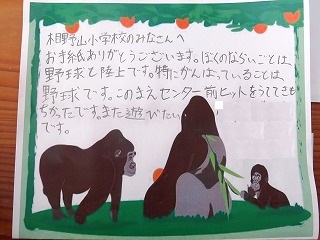 相野山小学校のみなさんへ
お手紙ありがとうございます。ぼくのならいごとは、
野球と陸上です。特にがんばっていることは、
野球です。このまえセンター前ヒットをうててきも
ちかったです。また遊びたい
です。